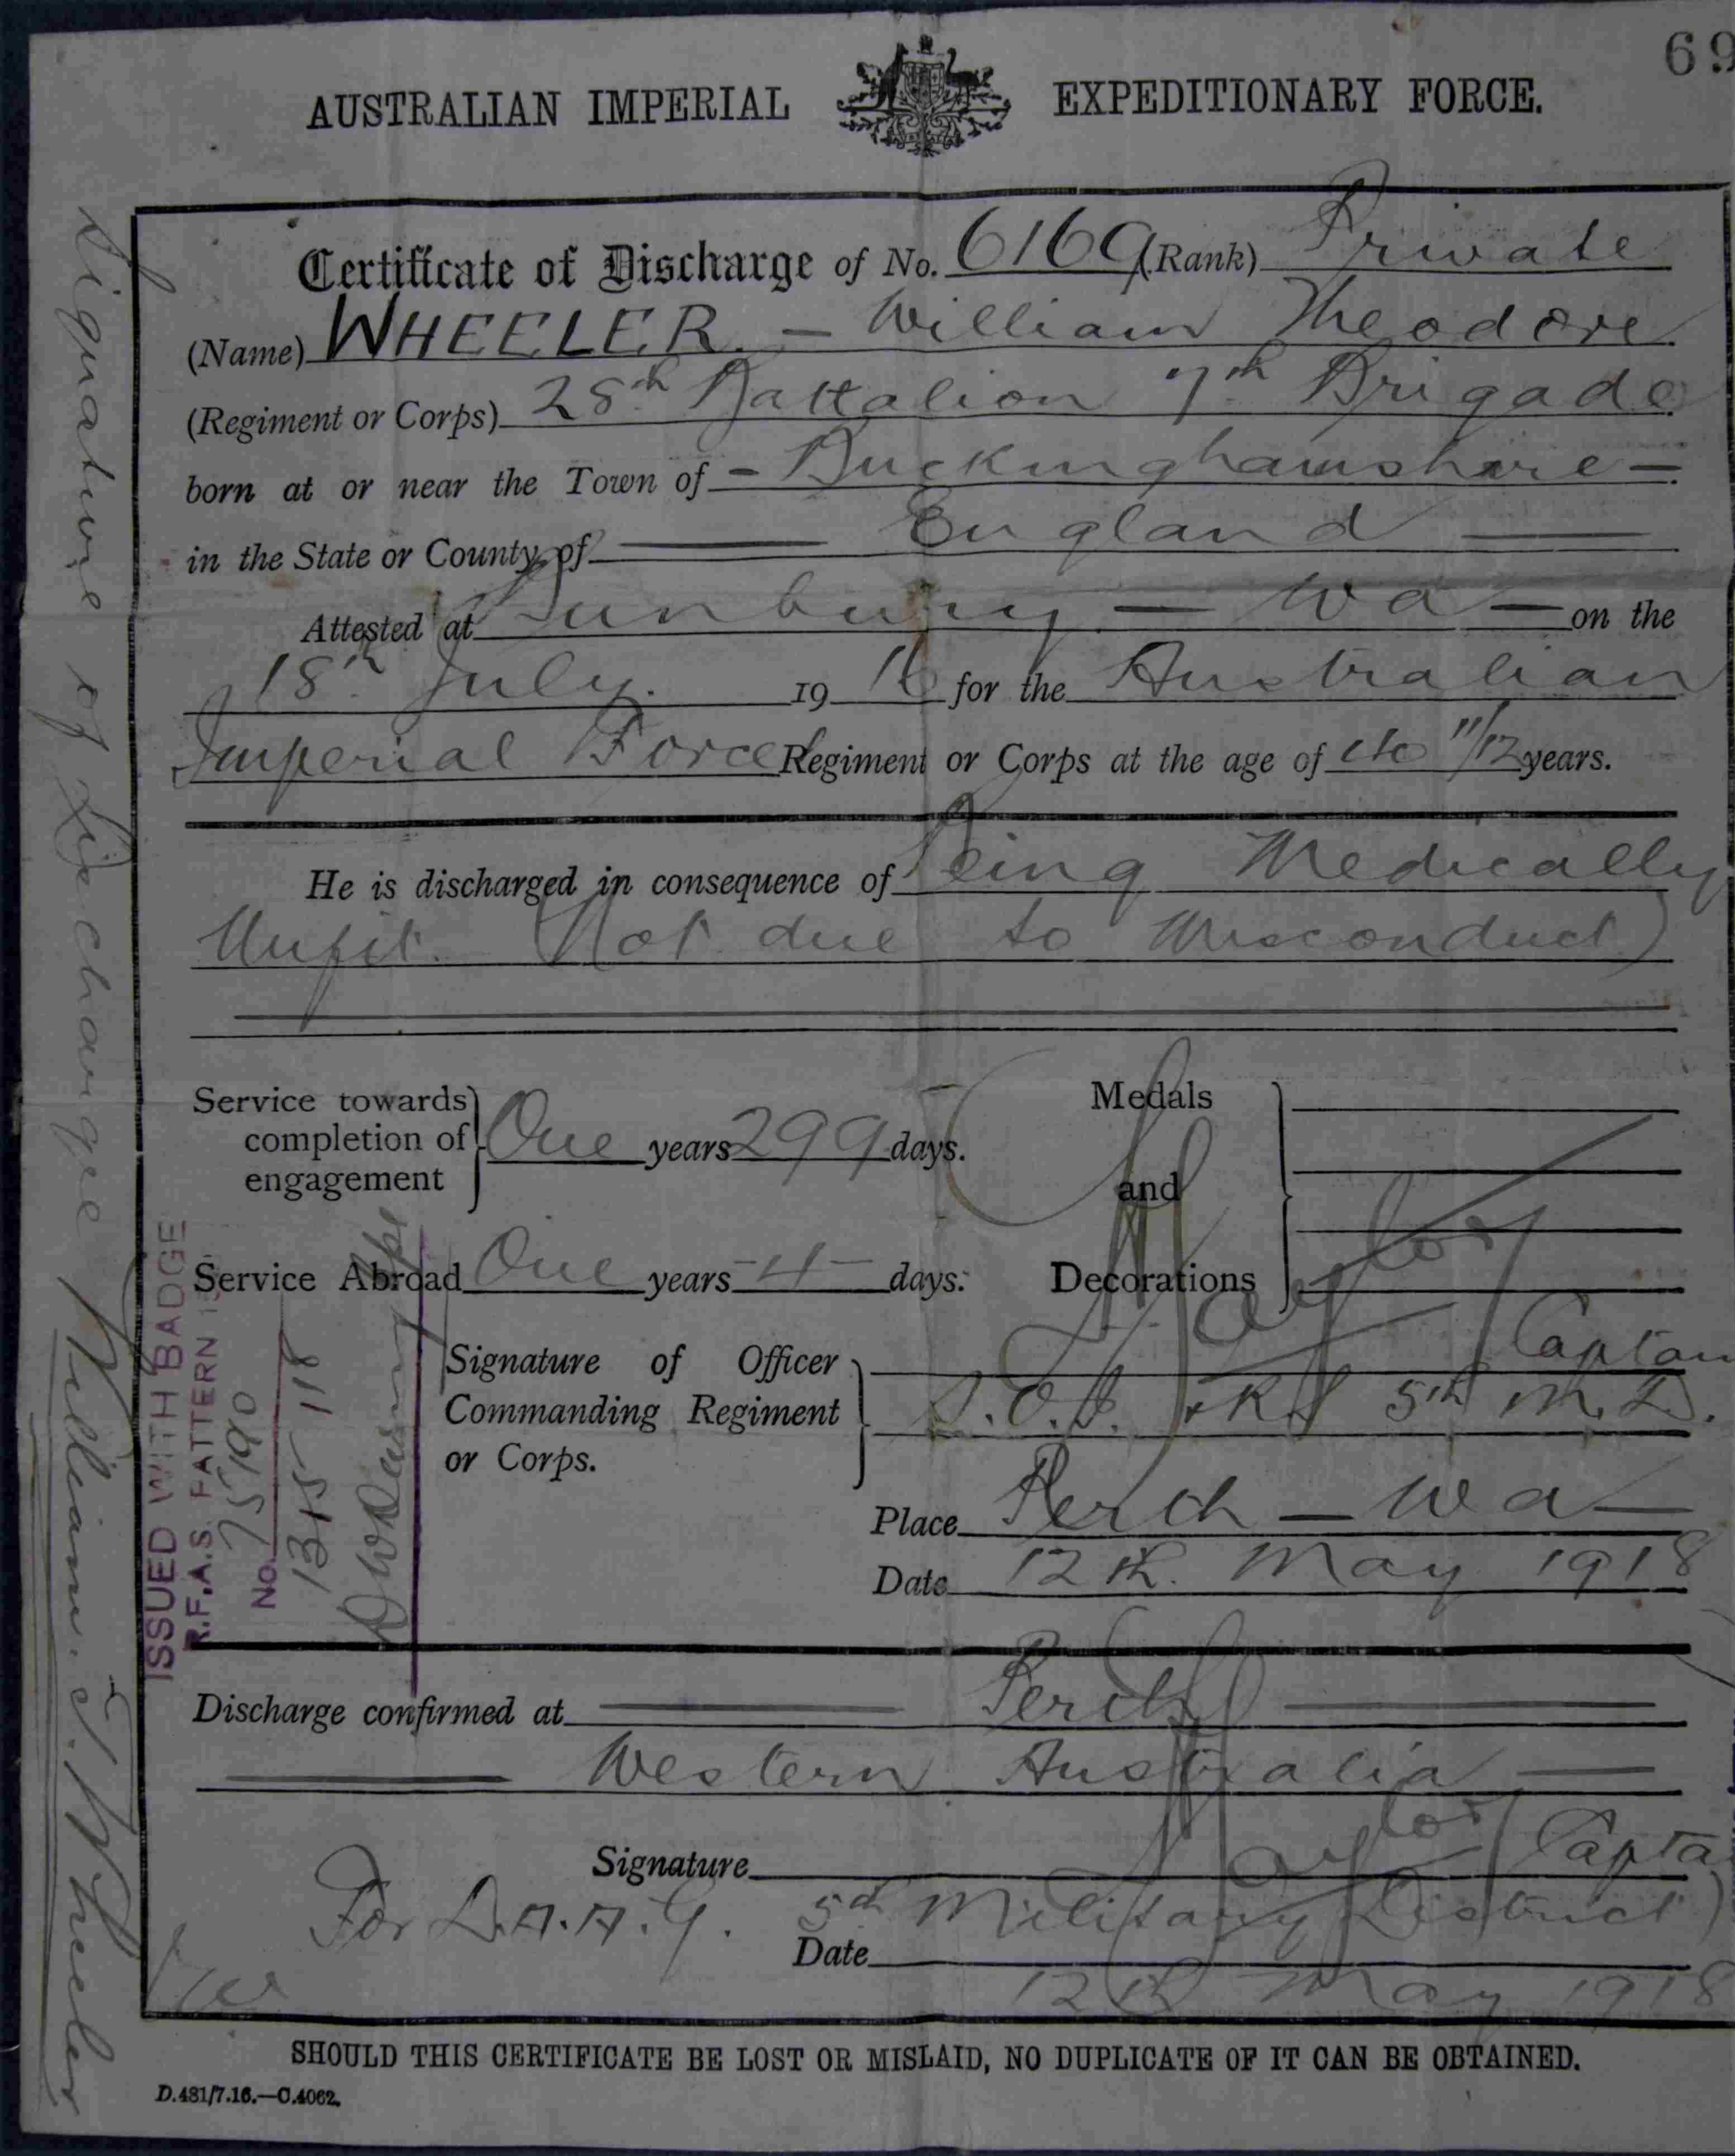 69
AUSTRALIAN IMPERIAL EXPEDITIONARY FORCE.
Certificate of Discharge of No. 6169 (Rank) Private
(Name) WHEELER - William Theodore
(Regiment or Corps) 28th Battalion 7th Brigade
born at or near the Town of - Buckinghamshire -
in the State or County of England
Attested at Bunbury - Wa - on the
18th July. 19 16 for the Australian
Imperial Force Regiment or Corps at the age of 11/12 years.
He is discharged in consequence of Being Medically
Unfit. Not due to Misconduct)
Service towards completion of engagement } One years 299 days.
Medals and Decorations }
Service Abroad One years -4- days.
Signature of Officer Commanding Regiment or Corps. } Taylor Captain
S.O.I. & R.S 5th M.D.
Place Perth - Wa -
Date 12th. May 1918
Discharge confirmed at Perth
Western Australia
Signature Taylor Capta
For D.A.A.G. 5th Military District)
Date 12th May 1918
SHOULD THIS CERTIFICATE BE LOST OR MISLAID, NO DUPLICATE OF IT CAN BE OBTAINED.
D.481/7.16.—C.4062.
Signature of Dischargee William. T. Wheeler
ISSUED WITH BADGE
R.F.A.S. PATTERN
No. 75190
13/5/18